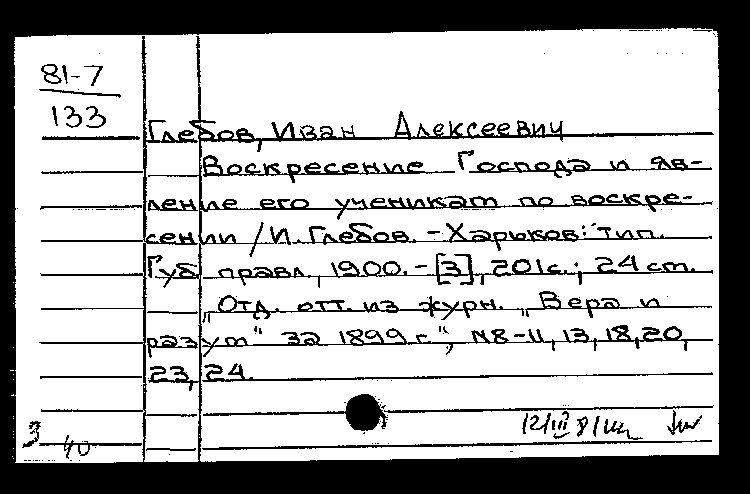 81-7
133
Глебов, Иван Алексеевич
Воскресение Господа и яв-
ление его ученикам по воскре-
сении / И. Глебов. - Харьков: тип.
Губ. правл., 1900. - [3], 201с.; 24 см.
„Отд. отт. из журн. „Вера и
разум“ за 1899 г.“, №8-11, 13, 18, 20,
23, 24.
3 40
12/III 81